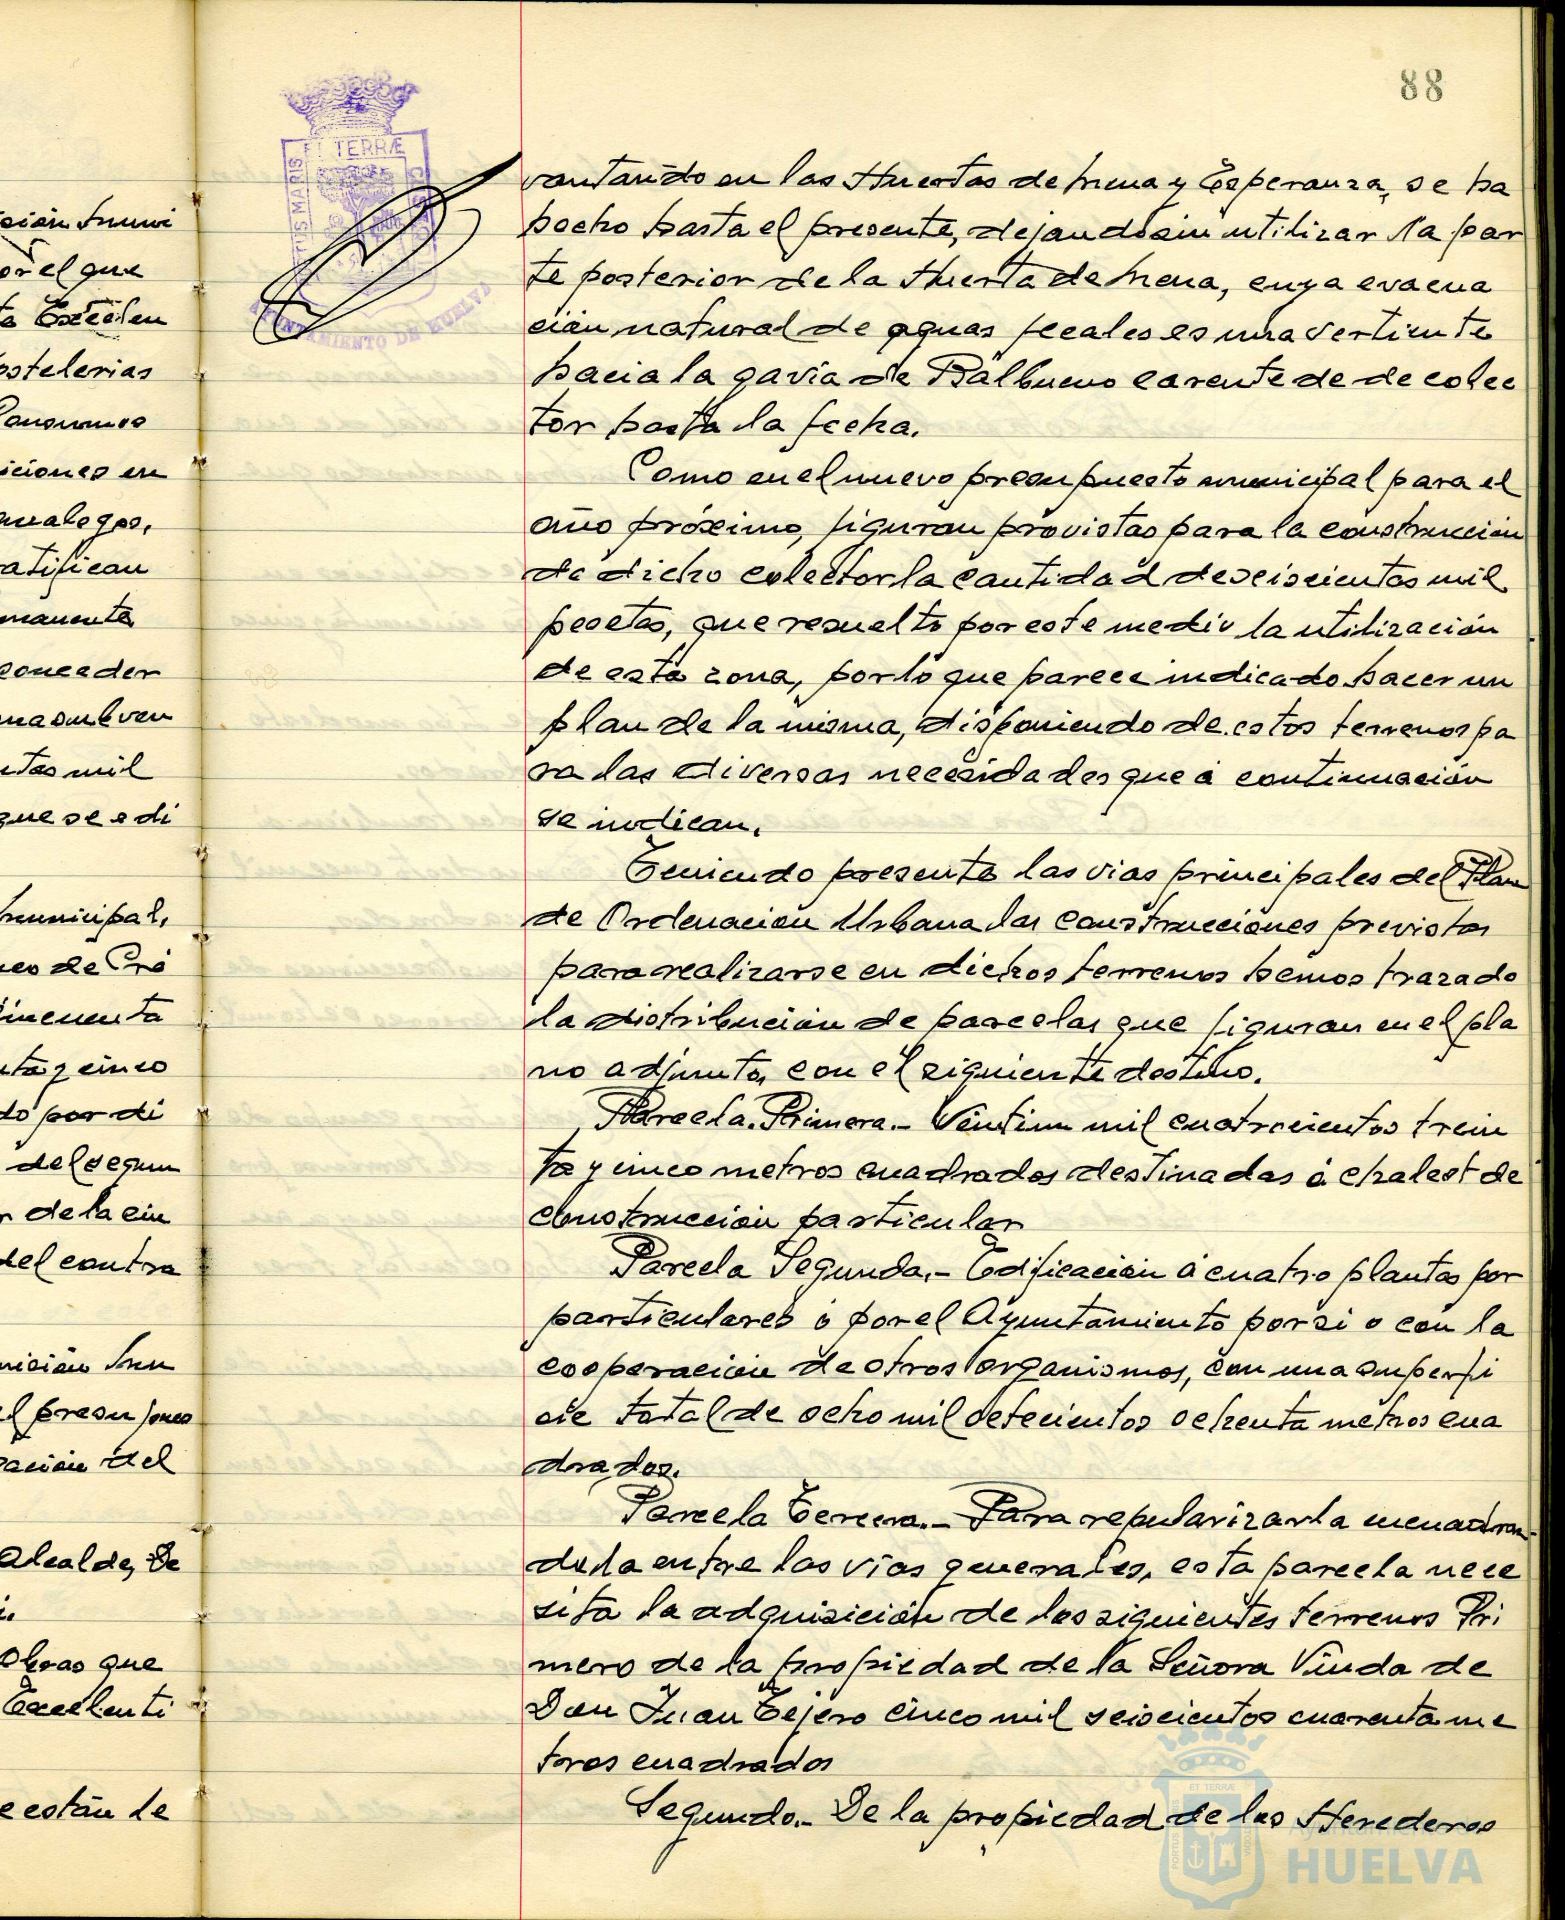 88
ET TERRÆ
PORTUS MARIS
CUSTODIA
AYUNTAMIENTO DE HUELVA
vantando en las Huertas de Mena y Esperanza, se ha
hecho hasta el presente, dejando sin utilizar la par
te posterior de la Huerta de Mena, cuya evacua
ción natural de aguas fecales es una vertiente
hacia la gavia de Balbueno carente de de colec
tor hasta la fecha.
Como en el nuevo presupuesto municipal para el
año próximo, figuran provistas para la construcción
de dicho colector la cantidad de seiscientas mil
pesetas, que resuelto por este medio la utilización
de esta zona, por lo que parece indicado hacer un
plan de la misma, disponiendo de estos terrenos pa
ra las diversas necesidades que á continuación
se indican.
Teniendo presente las vias principales del Plan
de Ordenación Urbana las construcciones previstas
para realizarse en dichos terrenos hemos trazado
la distribución de parcelas que figuran en el pla
no adjunto, con el siguiente destino.
Parcela Primera.- Veintiun mil cuatrocientos trein
ta y cinco metros cuadrados destinadas á chalest de
construcción particular
Parcela Segunda.- Edificación á cuatro plantas por
particulares ó por el Ayuntamiento por si o con la
cooperación de otros organismos, con una superfi
cie total de ocho mil setecientos ochenta metros cua
drados.
Parcela Tercera.- Para regularizarla encuadran
dola entre las vias generales, esta parcela nece
sita la adquisición de los siguientes terrenos Pri
mero de la propiedad de la Señora Viuda de
Don Juan Tejero cinco mil seiscientos cuarenta me
tros cuadrados
Segundo.- De la propiedad de los Herederos
ción Muni
or el que
ta Excelen
ostelerias
Panorumos
iciones en
analogos,
ratifican
manente
conceder
una subven
ntas mil
que se edi
municipal,
neo de Cré
cincuenta
nta y cinco
do por di
del segun
r de la ciu
del contra
misión Mun
el presupues
zación del
Alcalde, De
Obras que
Excelenti
e están le
ET TERRÆ
Ayuntamiento de
HUELVA